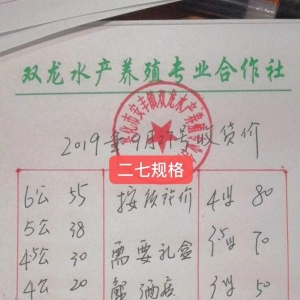 双龙水产养殖专业合作社
2019年9月 号收货价
二七规格
6公 55 按 价 4母 80
5公 38 3.5母 70
4.5公 30 需要礼盒
4公 20 3母 50